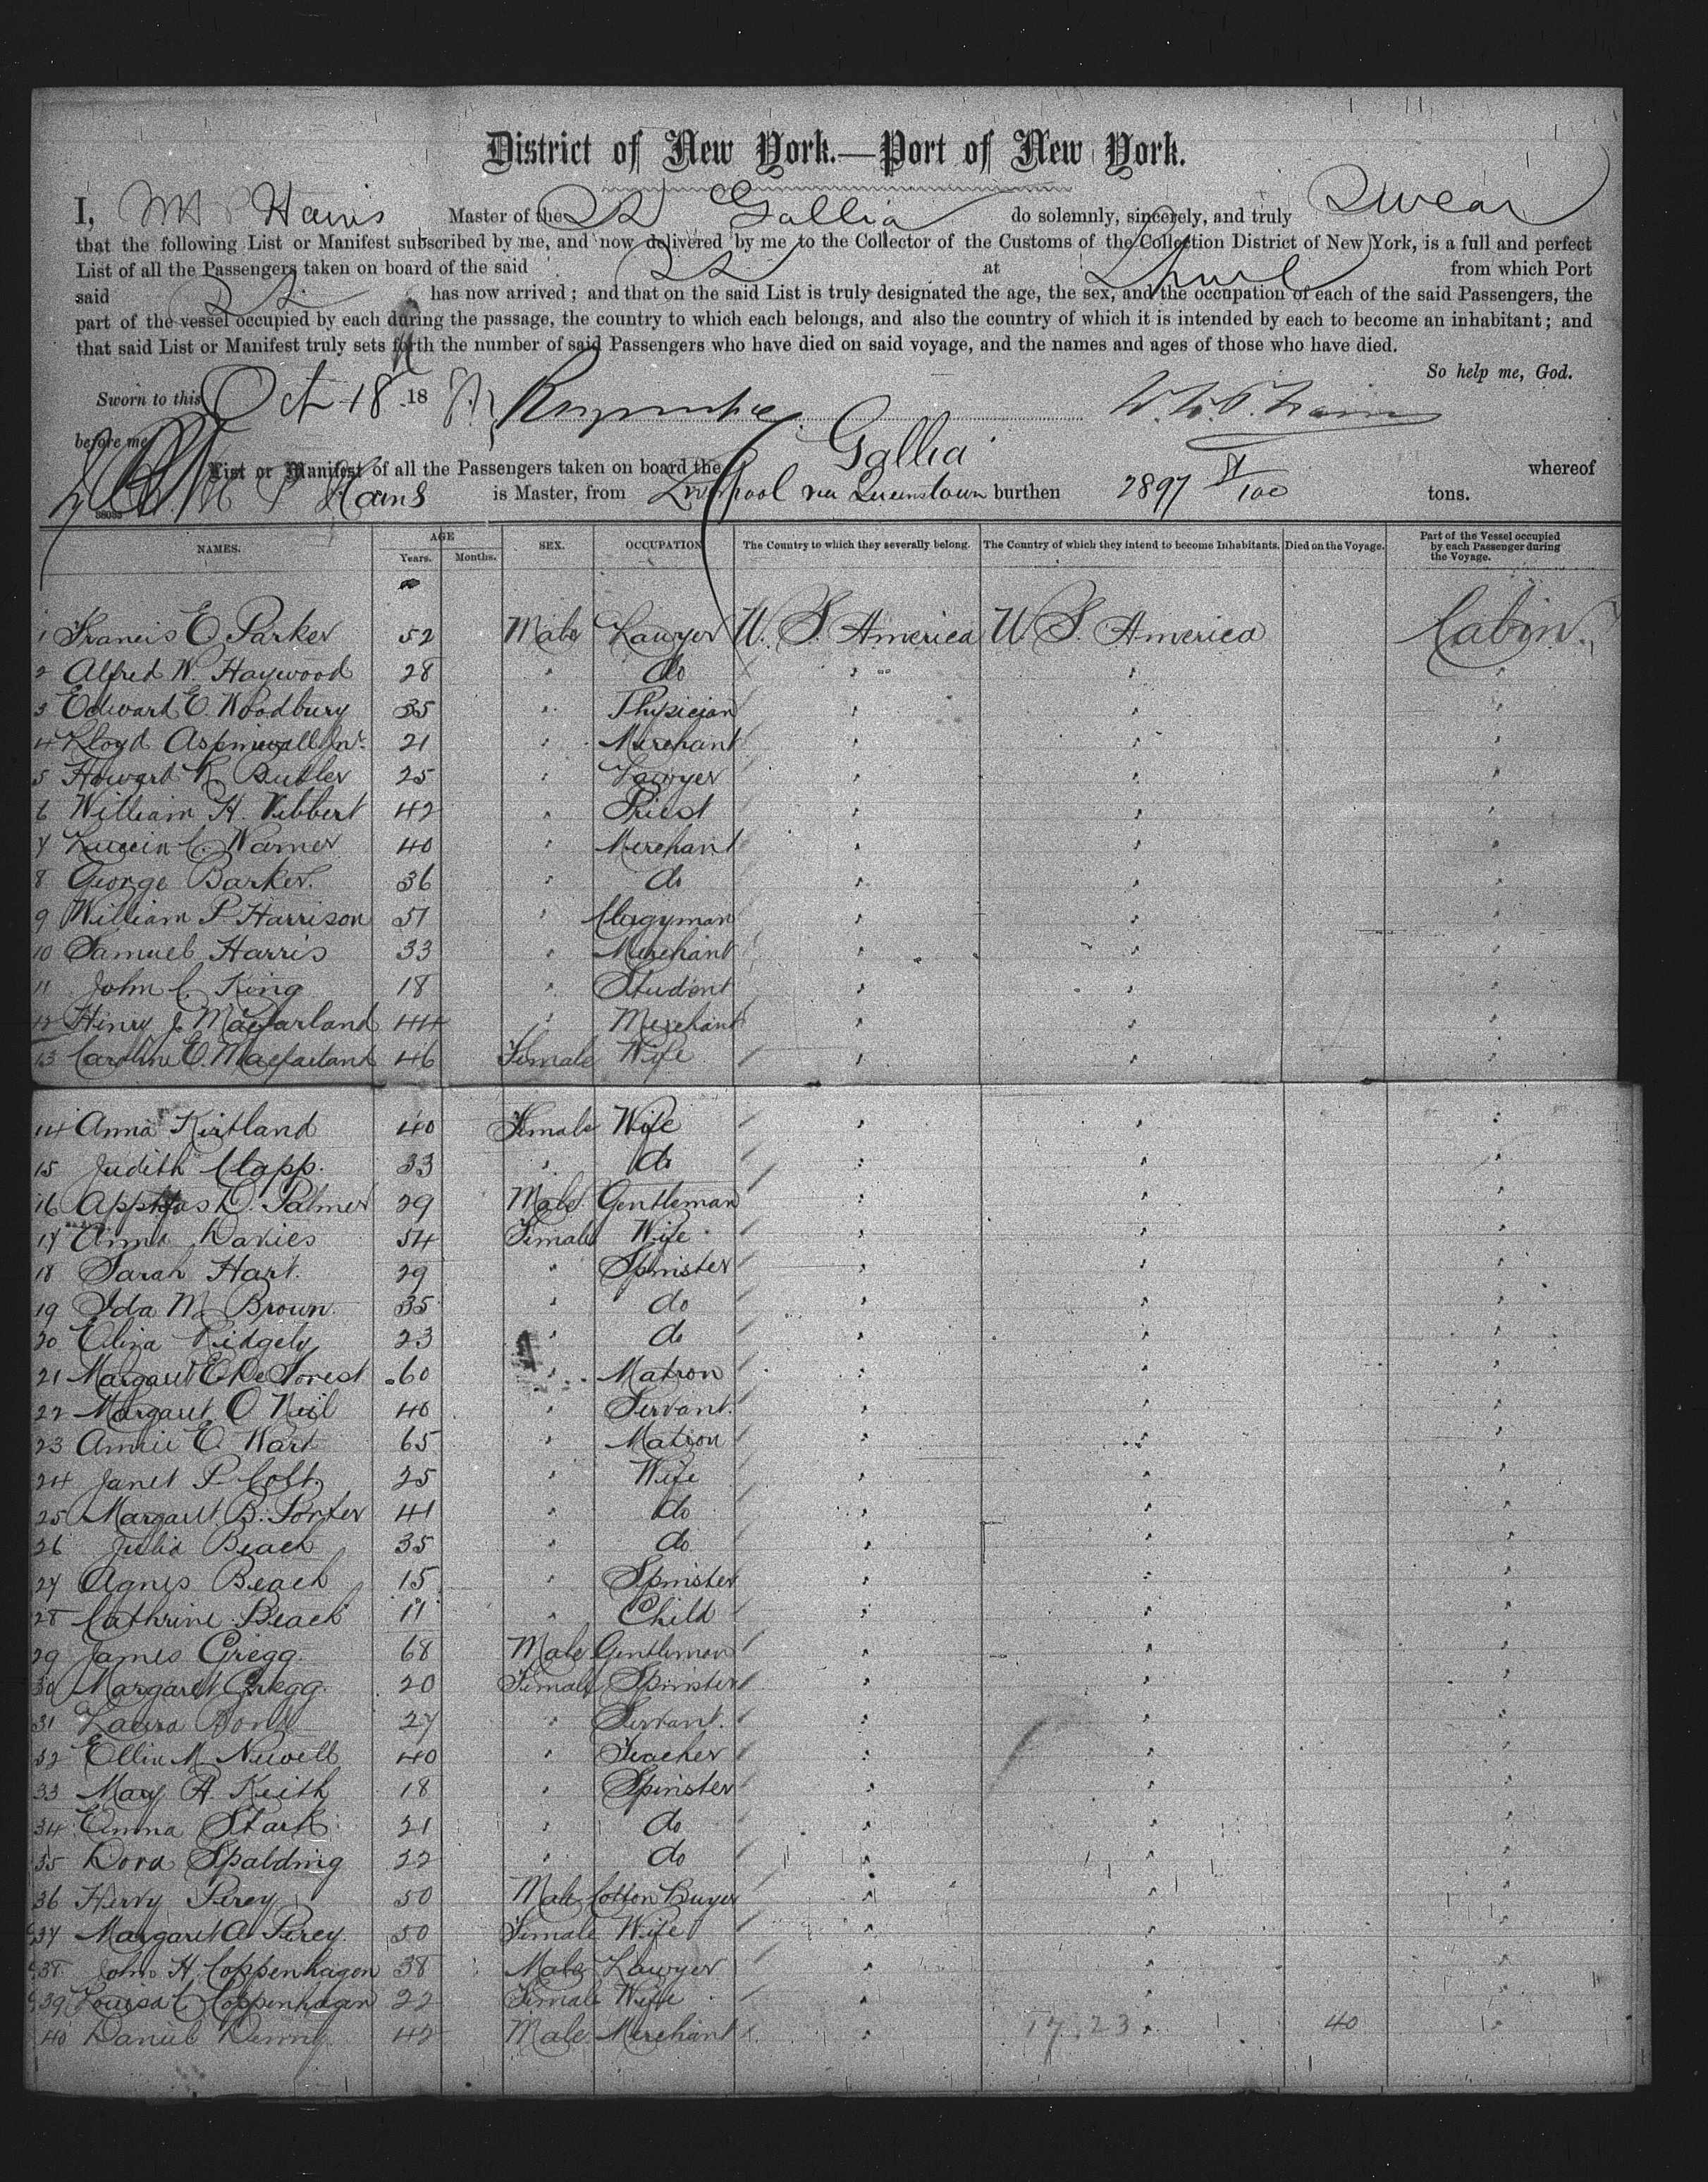 District of New York.—Port of New York.
I, Hains Master of the SS Gallia do solemnly, sincerely, and truly Swear
that the following List or Manifest subscribed by me, and now delivered by me to the Collector of the Customs of the Collection District of New York, is a full and perfect
List of all the Passengers taken on board of the said SS at from which Port
said SS has now arrived; and that on the said List is truly designated the age, the sex, and the occupation of each of the said Passengers, the
part of the vessel occupied by each during the passage, the country to which each belongs, and also the country of which it is intended by each to become an inhabitant; and
that said List or Manifest truly sets forth the number of said Passengers who have died on said voyage, and the names and ages of those who have died.
So help me, God.
Sworn to this Oct 18 18
before me
List or Manifest of all the Passengers taken on board the Gallia whereof
Hains is Master, from Liverpool via Queenstown burthen 2897 tons.
NAMES. AGE Years. Months. SEX. OCCUPATION The Country to which they severally belong. The Country of which they intend to become Inhabitants. Died on the Voyage. Part of the Vessel occupied by each Passenger during the Voyage.
1 Francis E Parker 52 Male Lawyer U. S. America U S. America Cabin
2 Alfred W. Haywood 28 " do " " "
3 Edward E. Woodbury 35 " Physician " " "
4 Lloyd Aspinwall Jnr. 21 " Merchant " " "
5 Howard R Butler 25 " Lawyer " " "
6 William H. Vibbert 42 " Priest " " "
7 Luccin C. Warner 40 " Merchant " " "
8 George Barker. 36 " do " " "
9 William P. Harrison 51 " Clagyman " " "
10 Samuel Harris 33 " Merchant " " "
11 John C. King 18 " Student " " "
12 Henry J. Macfarland 44 " Merchant " " "
13 Caroline E. Macfarland 46 Female Wife " " "
14 Anna Kirtland 40 Female Wife " " "
15 Judith Clapp. 33 " do " " "
16 D. Palmer 29 Male Gentleman " " "
17 Anna Davies 54 Female Wife " " "
18 Sarah Hart. 29 " Spinster " " "
19 Ida M. Brown 35 " do " " "
20 Eliza Ridgely 23 " do " " "
21 Margaret E De Forest 60 " Matron " " "
22 Margaret O Neil 40 " Servant. " " "
23 Annie E. Wart 65 " Matron " " "
24 Janet P. Colt. 25 " Wife " " "
25 Margaret B. Porter 41 " do " " "
26 Julia Beach 35 " do " " "
27 Agnes Beach 15 " Spinster " " "
28 Cathrine Beach 11 " Child " " "
29 James Gregg 68 Male Gentleman " " "
30 Margaret Gregg. 20 Female Spinster " " "
31 Laura 27 " Servant. " " "
32 Ellin M. Newell 40 " Teacher " " "
33 Mary A. Keith 18 " Spinster " " "
34 Emma Stark 21 " do " " "
35 Dora Spalding 22 " do " " "
36 Hervy Percy 50 Male Cotton Buyer " " "
37 Margaret A Percy. 50 Female Wife " " "
38 John H. Coppenhagen 38 Male Lawyer " " "
39 Louisa C Coppenhagen 22 Female Wife " " "
40 Daniel Denny 42 Male Merchant " 17.23 " 40 "